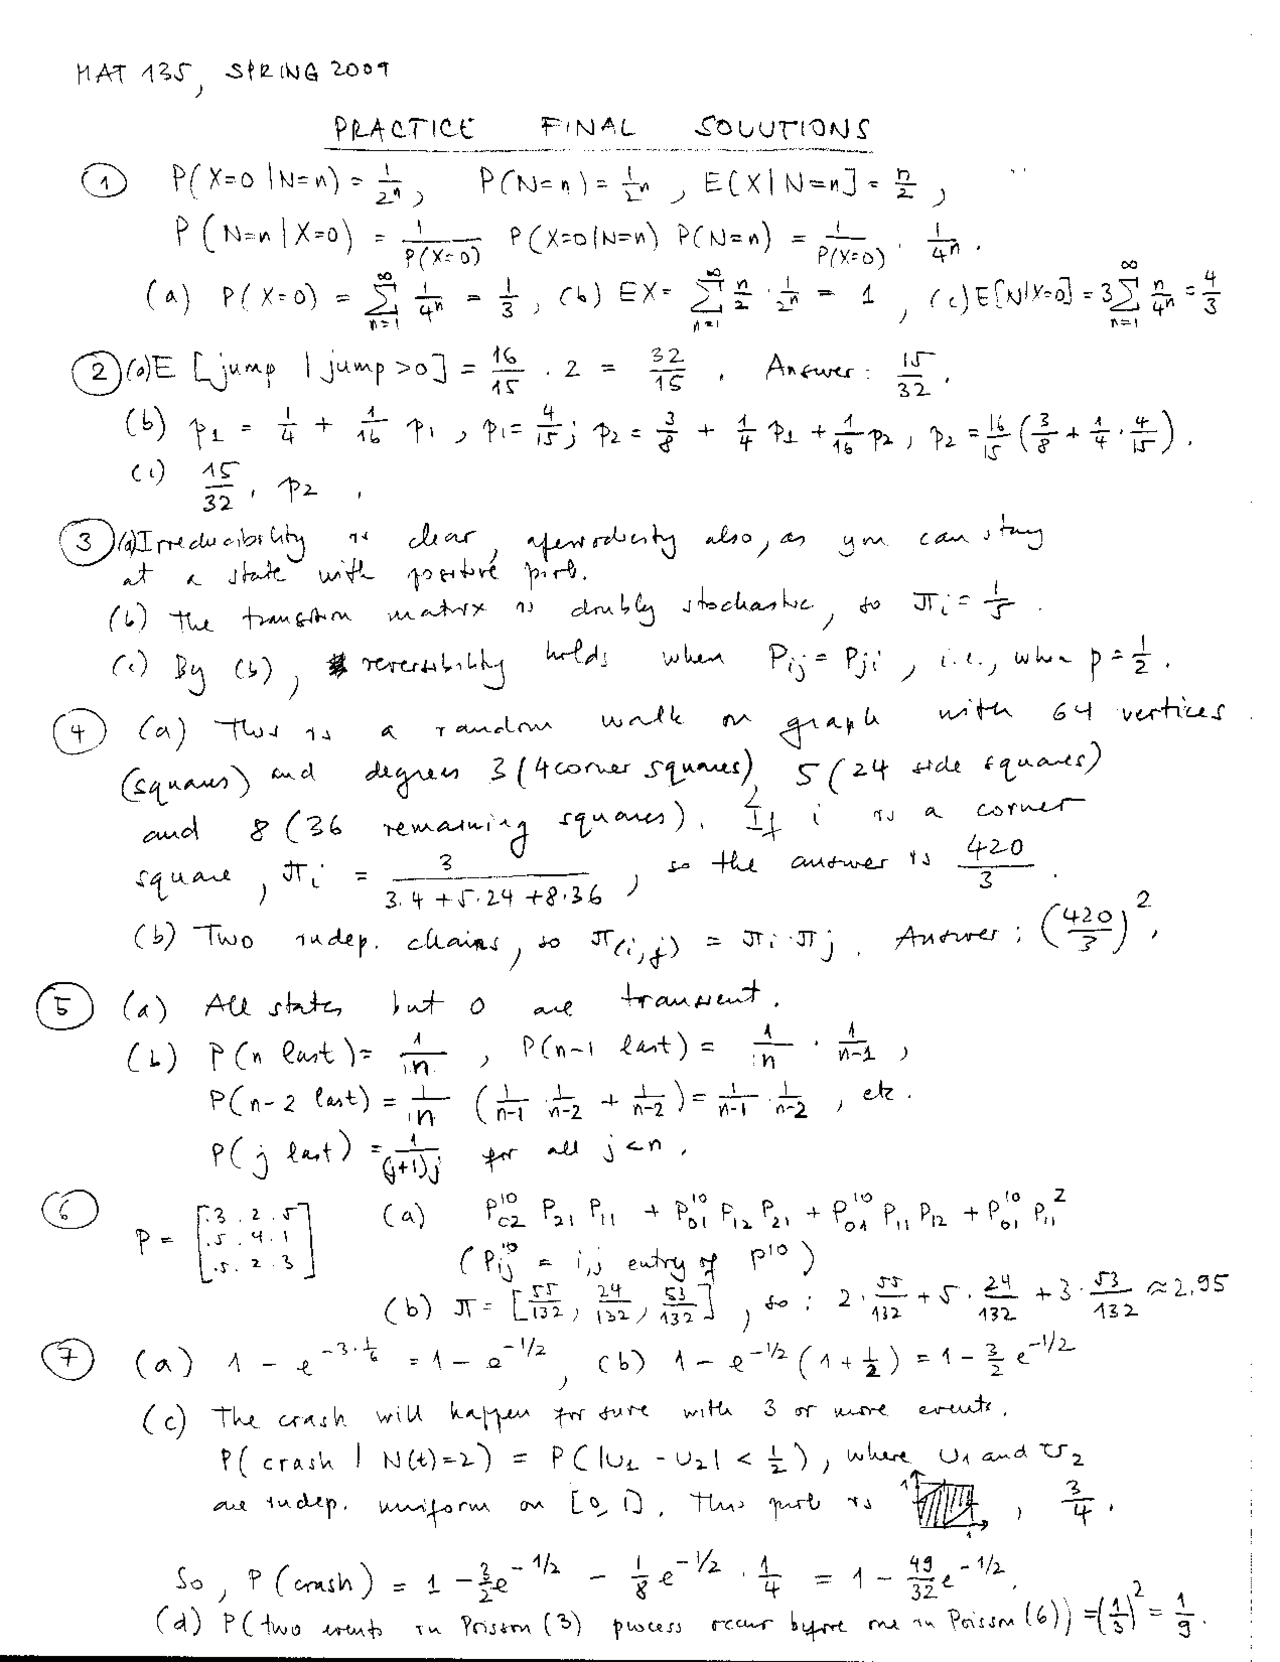 MAT 135, SPRING 2009
PRACTICE FINAL SOLUTIONS
① P(X=0 | N=n) = 1/2^n, P(N=n) = 1/2^n, E[X | N=n] = n/2,
P(N=n | X=0) = 1/P(X=0) P(X=0|N=n) P(N=n) = 1/P(X=0) · 1/4^n.
(a) P(X=0) = ∑_{n=1}^∞ 1/4^n = 1/3, (b) EX = ∑_{n=1}^∞ n/2 · 1/2^n = 1, (c) E[N|X=0] = 3∑_{n=1}^∞ n/4^n = 4/3
② (a) E [jump | jump>0] = 16/15 · 2 = 32/15. Answer: 15/32.
(b) p_1 = 1/4 + 1/16 p_1, p_1 = 4/15; p_2 = 3/8 + 1/4 p_1 + 1/16 p_2, p_2 = 16/15 (3/8 + 1/4 · 4/15).
(c) 15/32 · p_2.
③ (a) Irreducibility is clear, aperiodicity also, as you can stay
at a state with positive prob.
(b) The transition matrix is doubly stochastic, so π_i = 1/5.
(c) By (b), reversibility holds when P_ij = P_ji, i.e., when p = 1/2.
④ (a) This is a random walk on graph with 64 vertices
(squares) and degrees 3 (4 corner squares), 5 (24 side squares)
and 8 (36 remaining squares). If i is a corner
square, π_i = 3/(3·4+5·24+8·36), so the answer is 420/3.
(b) Two indep. chains, so π_(i,j) = π_i · π_j. Answer: (420/3)^2.
⑤ (a) All states but 0 are transient.
(b) P(n last) = 1/n, P(n-1 last) = 1/n · 1/(n-1),
P(n-2 last) = 1/n (1/(n-1) · 1/(n-2) + 1/(n-2)) = 1/(n-1) · 1/(n-2), etc.
P(j last) = 1/((j+1)j) for all j<n.
⑥ P = [.3 .2 .5 ; .5 .4 .1 ; .5 .2 .3] (a) P_02^10 P_21 P_11 + P_01^10 P_12 P_21 + P_01^10 P_11 P_12 + P_01^10 P_11^2
(P_ij^10 = i,j entry of P^10)
(b) π = [55/132, 24/132, 53/132], so: 2 · 55/132 + 5 · 24/132 + 3 · 53/132 ≈ 2.95
⑦ (a) 1 - e^{-3·1/6} = 1 - e^{-1/2}, (b) 1 - e^{-1/2} (1 + 1/2) = 1 - 3/2 e^{-1/2}
(c) The crash will happen for sure with 3 or more events.
P(crash | N(t)=2) = P(|U_1 - U_2| < 1/2), where U_1 and U_2
are indep. uniform on [0,1]. This prob is 1 1, 3/4.
So, P(crash) = 1 - 3/2 e^{-1/2} - 1/8 e^{-1/2} · 1/4 = 1 - 49/32 e^{-1/2}.
(d) P(two events in Poisson(3) process occur before one in Poisson(6)) = (1/3)^2 = 1/9.